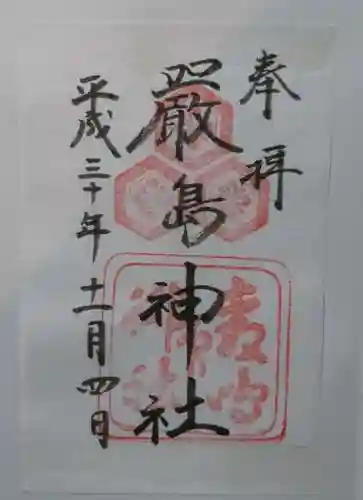 奉拝
厳島神社
平成三十年十一月四日